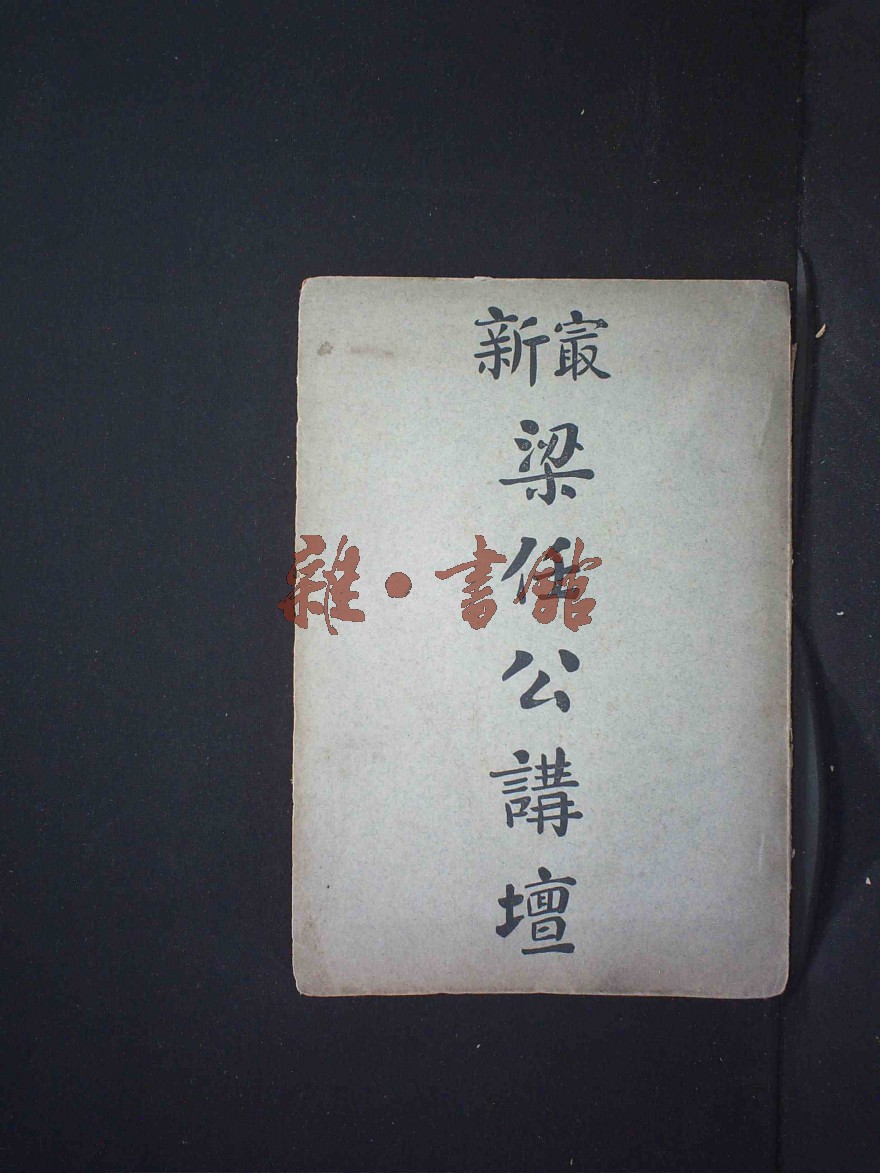 寂新
梁任公講壇
雜·書館